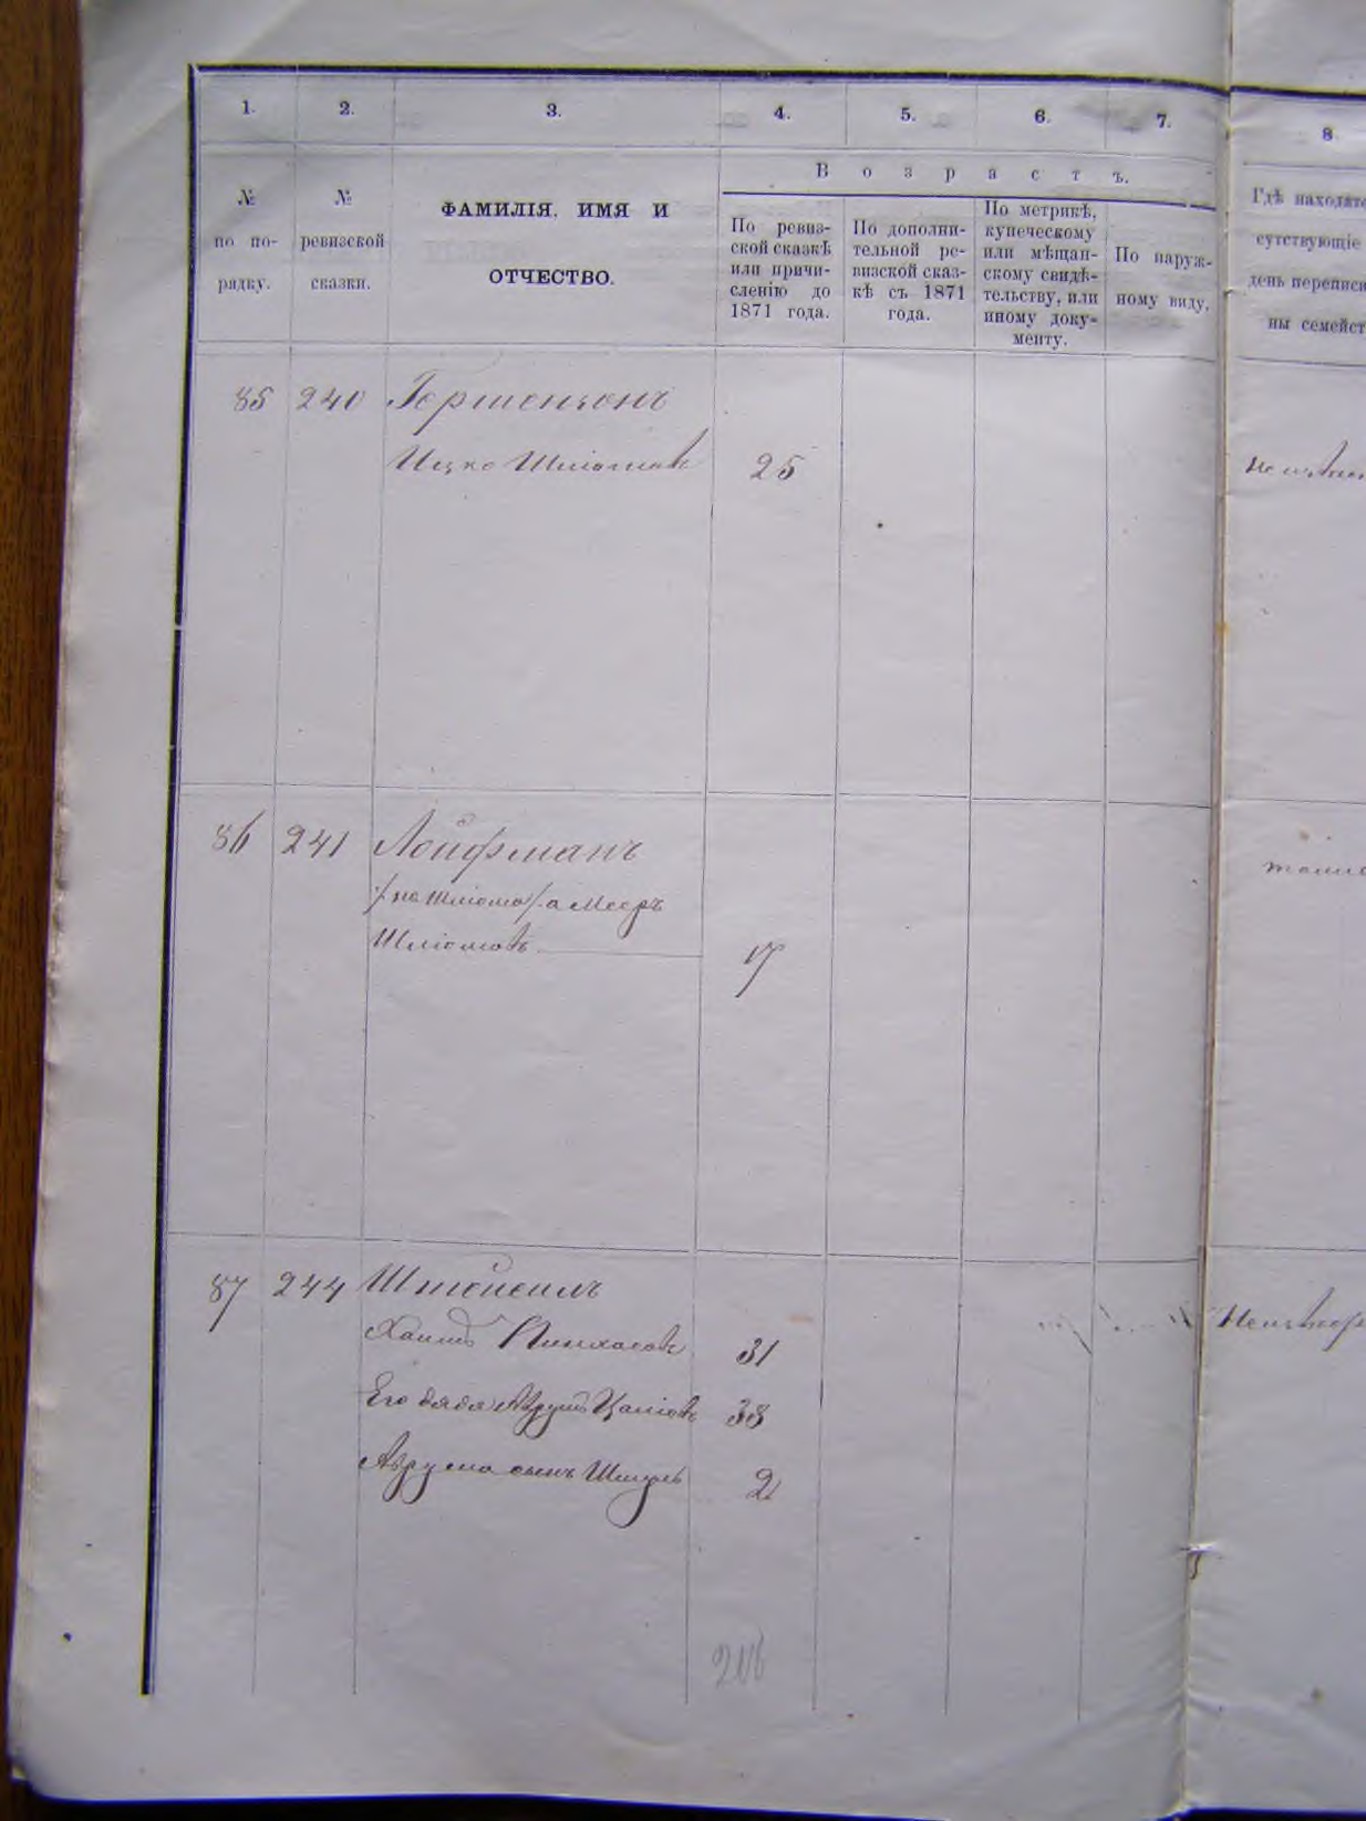 1. 2. 3. 4. 5. 6. 7. 8
Возрастъ.
№ по по-рядку.
№ ревизской сказки.
ФАМИЛІЯ, ИМЯ И
ОТЧЕСТВО.
По ревиз-
ской сказкѣ
или причи-
сленію до
1871 года.
По дополни-
тельной ре-
визской сказ-
кѣ съ 1871
года.
По метрикѣ,
купеческому
или мѣщан-
скому свидѣ-
тельству, или
иному доку-
менту.
По наруж-
ному виду.
Гдѣ находятс
сутствующіе
день переписи
ны семейст
85 240 Гершензонъ
Ицко Шліомовъ 25
86 241 Лойфманъ
/не Шліома/ а Мееръ
Шліомовъ 17
87 244 Штейнгилъ
Хаимъ Пинхасовъ 31
Его дядя Аврумъ 38
Аврума сынъ Шмуль 2
206